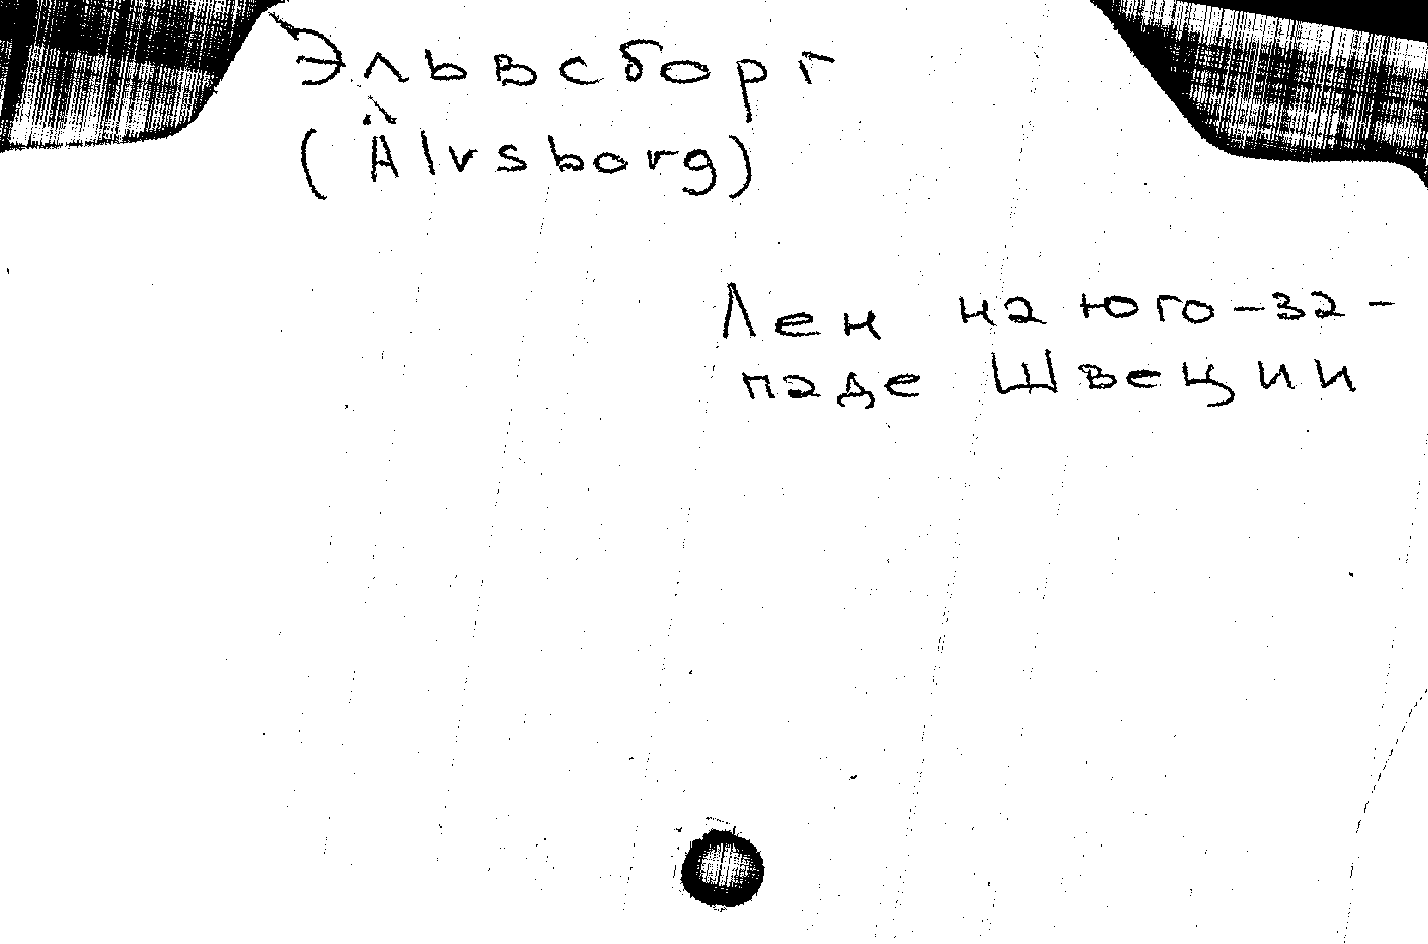 Эльвсборг
(Älvsborg)
Лен на юго-за-
паде Швеции